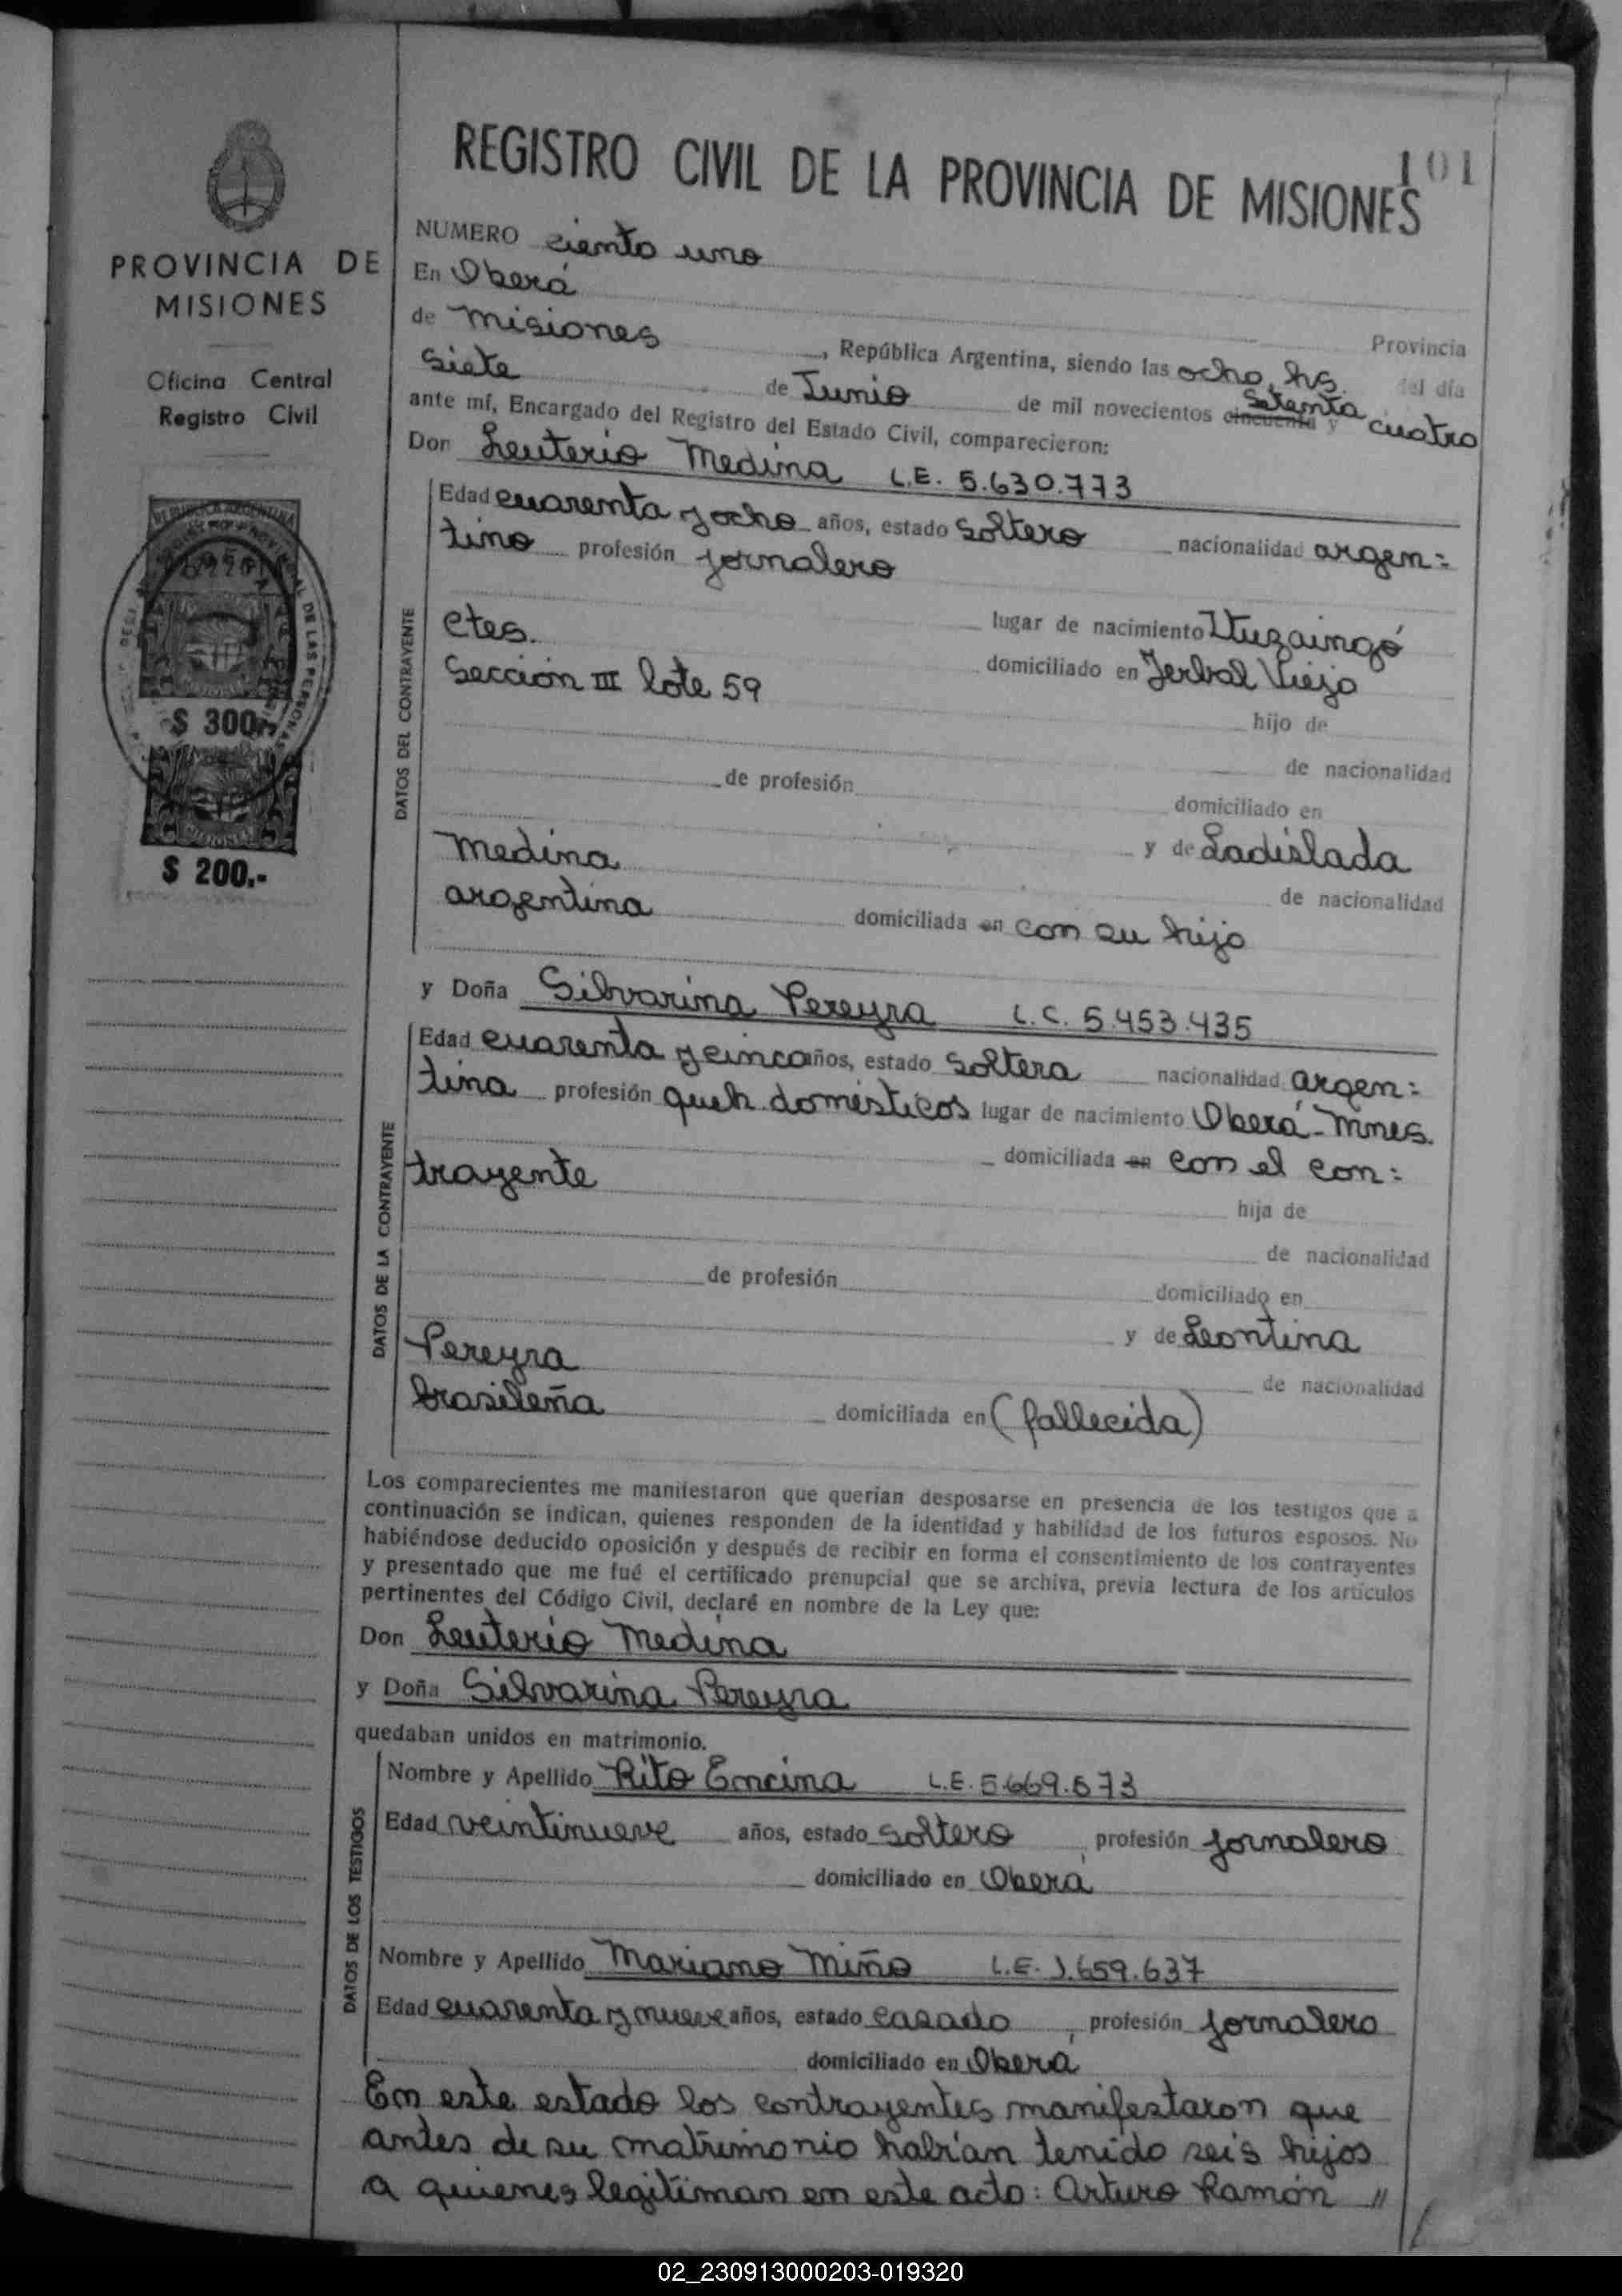 101
REGISTRO CIVIL DE LA PROVINCIA DE MISIONES
PROVINCIA DE
MISIONES
Oficina Central
Registro Civil
$ 300.-
$ 200.-
NUMERO ciento uno
En Oberá Provincia
de Misiones, República Argentina, siendo las ocho hs. del día
siete de Junio de mil novecientos cincuenta y setenta cuatro
ante mí, Encargado del Registro del Estado Civil, comparecieron:
Don Leuterio Medina L.E. 5.630.773
DATOS DEL CONTRAYENTE
Edad cuarenta y ocho años, estado soltero nacionalidad argen=
tino profesión jornalero
lugar de nacimiento Ituzaingó
ctes. domiciliado en Yerbal Viejo
Sección III lote 59
hijo de
de nacionalidad
de profesión domiciliado en
y de Ladislada
Medina de nacionalidad
argentina domiciliada en con su hijo
y Doña Silvarina Pereyra L.C. 5.453.435
DATOS DE LA CONTRAYENTE
Edad cuarenta y cinco años, estado soltera nacionalidad argen=
tina profesión queh. domésticos lugar de nacimiento Oberá-Mnes.
domiciliada en con el con=
trayente
hija de
de nacionalidad
de profesión domiciliado en
y de Leontina
Pereyra de nacionalidad
brasileña domiciliada en (fallecida)
Los comparecientes me manifestaron que querían desposarse en presencia de los testigos que a
continuación se indican, quienes responden de la identidad y habilidad de los futuros esposos. No
habiéndose deducido oposición y después de recibir en forma el consentimiento de los contrayentes
y presentado que me fué el certificado prenupcial que se archiva, previa lectura de los artículos
pertinentes del Código Civil, declaré en nombre de la Ley que:
Don Leuterio Medina
y Doña Silvarina Pereyra
quedaban unidos en matrimonio.
DATOS DE LOS TESTIGOS
Nombre y Apellido Rito Encina L.E. 5.669.573
Edad veintinueve años, estado soltero, profesión jornalero
domiciliado en Oberá
Nombre y Apellido Mariano Miño L.E. 1.659.637
Edad cuarenta y nueve años, estado casado, profesión jornalero
domiciliado en Oberá
En este estado los contrayentes manifestaron que
antes de su matrimonio habían tenido seis hijos
a quienes legitiman en este acto: Arturo Ramón //
02_230913000203-019320